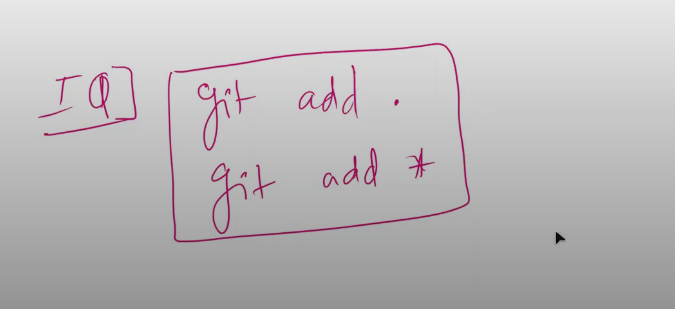 IQ]
git add .
git add *